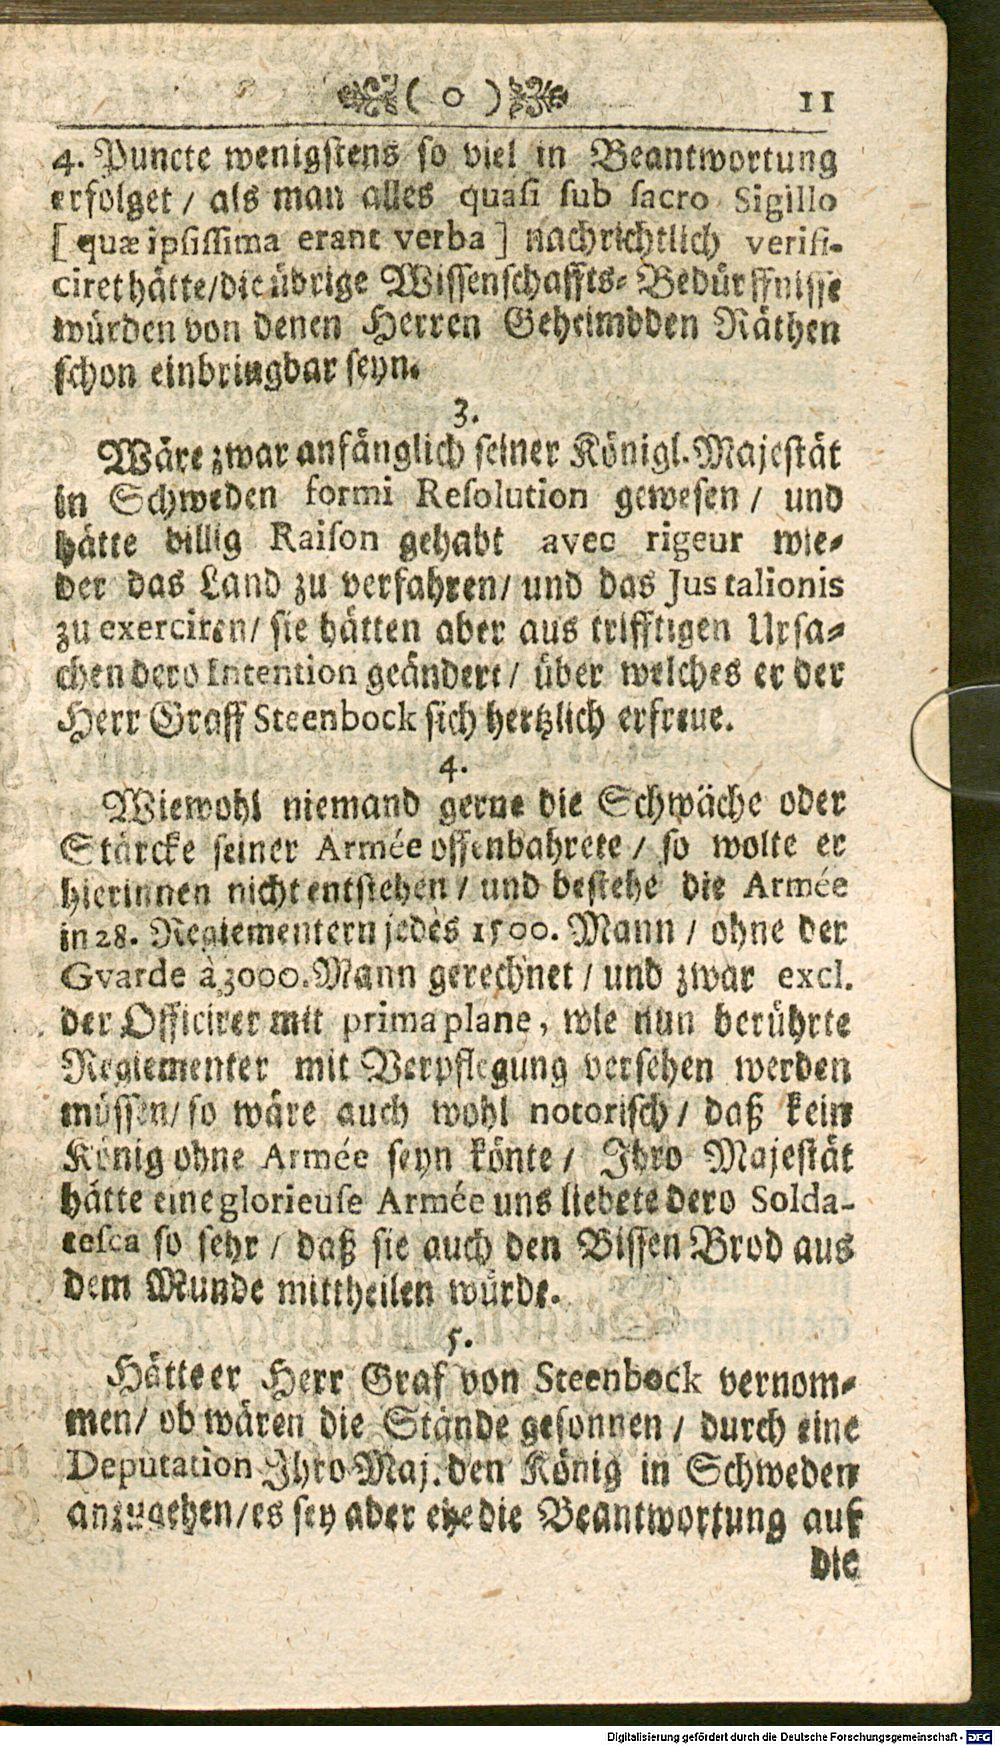 ( o ) 11
4. Puncte wenigstens so viel in Beantwortung
erfolget / als man alles quasi sub sacro Sigillo
[ quæ ipsissima erant verba ] nachrichtlich verifi-
ciret hätte/die übrige Wissenschaffts-Bedürffnisse
würden von denen Herren Geheimbden Räthen
schon einbringbar seyn.
3.
Wäre zwar anfänglich seiner Königl. Majestät
in Schweden formi Resolution gewesen / und
hätte billig Raison gehabt avec rigeur wie-
der das Land zu verfahren/ und das Jus talionis
zu exerciren/ sie hätten aber aus trifftigen Ursa-
chen dero Intention geändert / über welches er der
Herr Graff Steenbock sich hertzlich erfreue.
4.
Wiewohl niemand gerne die Schwäche oder
Stärcke seiner Armée offenbahrete / so wolte er
hierinnen nicht entstehen / und bestehe die Armée
in 28. Regiementern jedes 1500. Mann / ohne der
Gvarde à 3000. Mann gerechnet / und zwar excl.
der Officirer mit prima plane, wie nun berührte
Regiementer mit Verpflegung versehen werden
müssen/ so wäre auch wohl notorisch / daß kein
König ohne Armée seyn könte / Ihro Majestät
hätte eine glorieuse Armée uns liebete dero Solda-
tesca so sehr / daß sie auch den Bissen Brod aus
dem Munde mittheilen würde.
5.
Hätte er Herr Graf von Steenbock vernom-
men/ ob wären die Stände gesonnen / durch eine
Deputation Ihro Maj. den König in Schweden
anzugehen/es sey aber ehe die Beantwortung auf
die
Digitalisierung gefördert durch die Deutsche Forschungsgemeinschaft - DFG